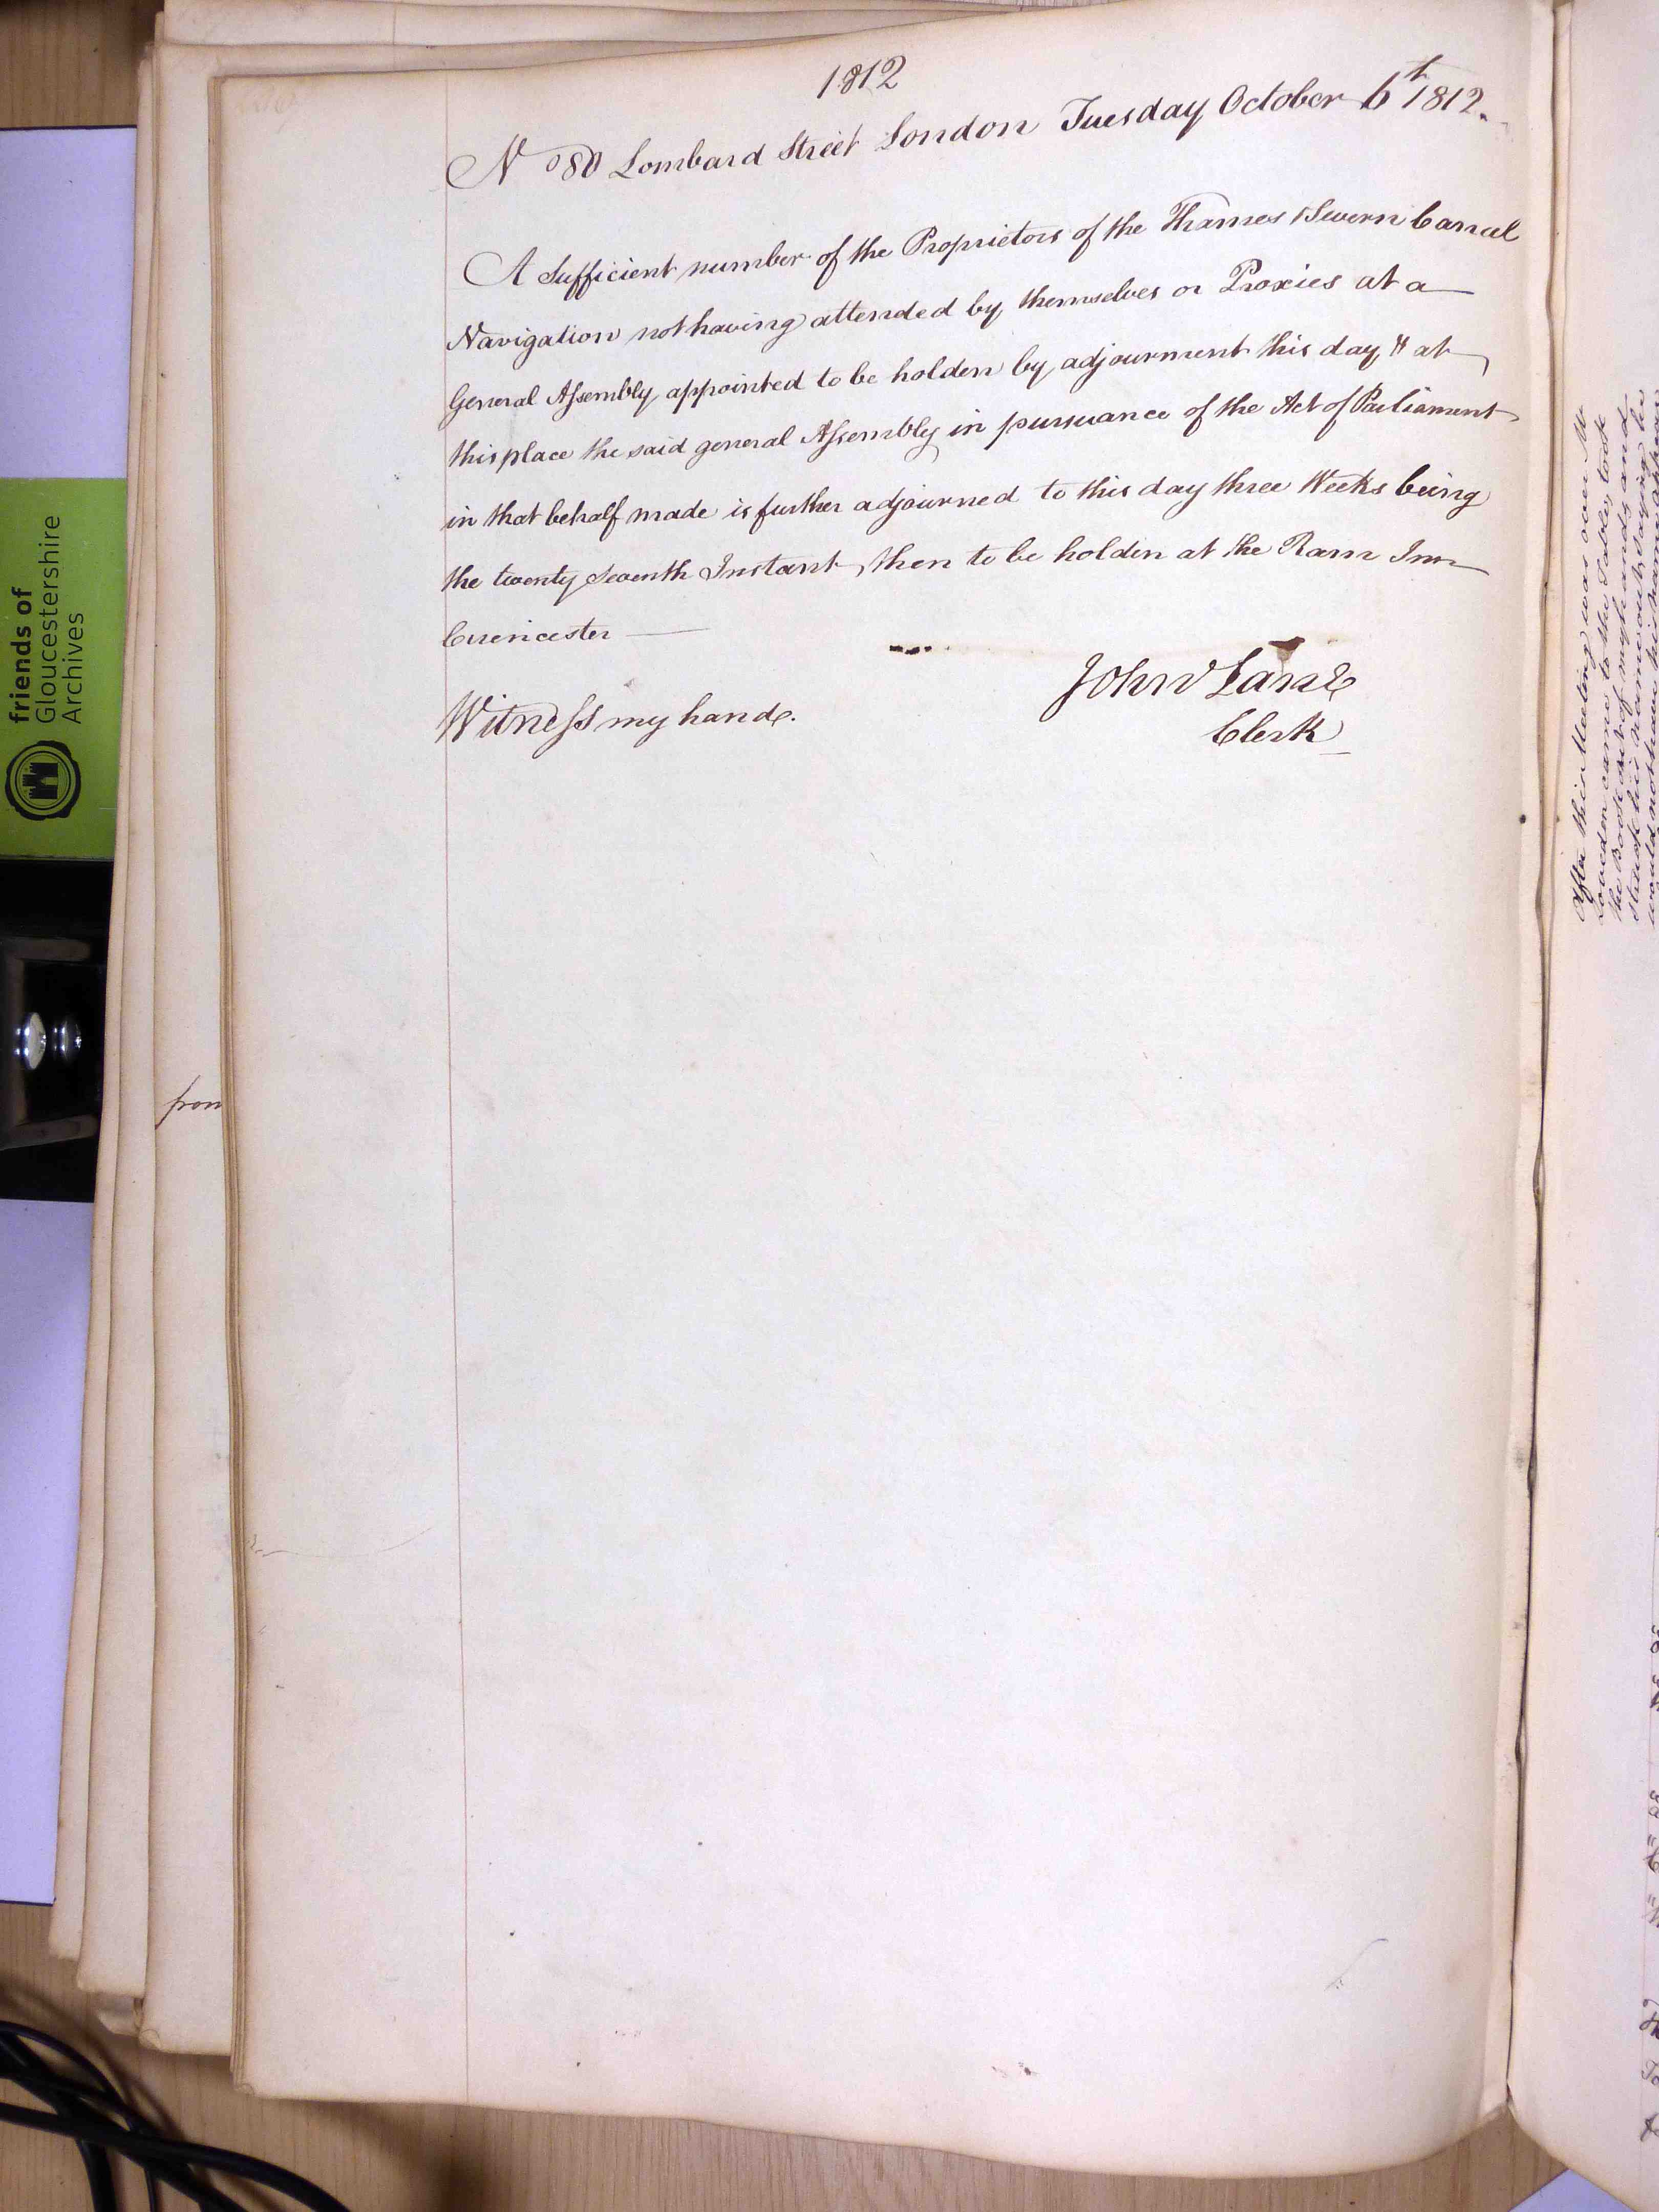 1812
No 80 Lombard Street London Tuesday October 6th 1812.
A Sufficient number of the Proprietors of the Thames & Severn Canal
Navigation not having attended by themselves or Proxies at a
General Assembly appointed to be holden by adjourment this day & at
this place the said general Assembly in pursuance of the Act of Parliament
in that behalf made is further adjourned to this day three Weeks being
the twenty seventh Instant, then to be holden at the Ram Inn
Cirencester
Witness my hand.
John Lane
Clerk
from
friends of
Gloucestershire
Archives
After this Meeting was over Mr
Loveden came to the Table, took
the Book out of my hands and
struck his name out, saying he
would not have his name appear